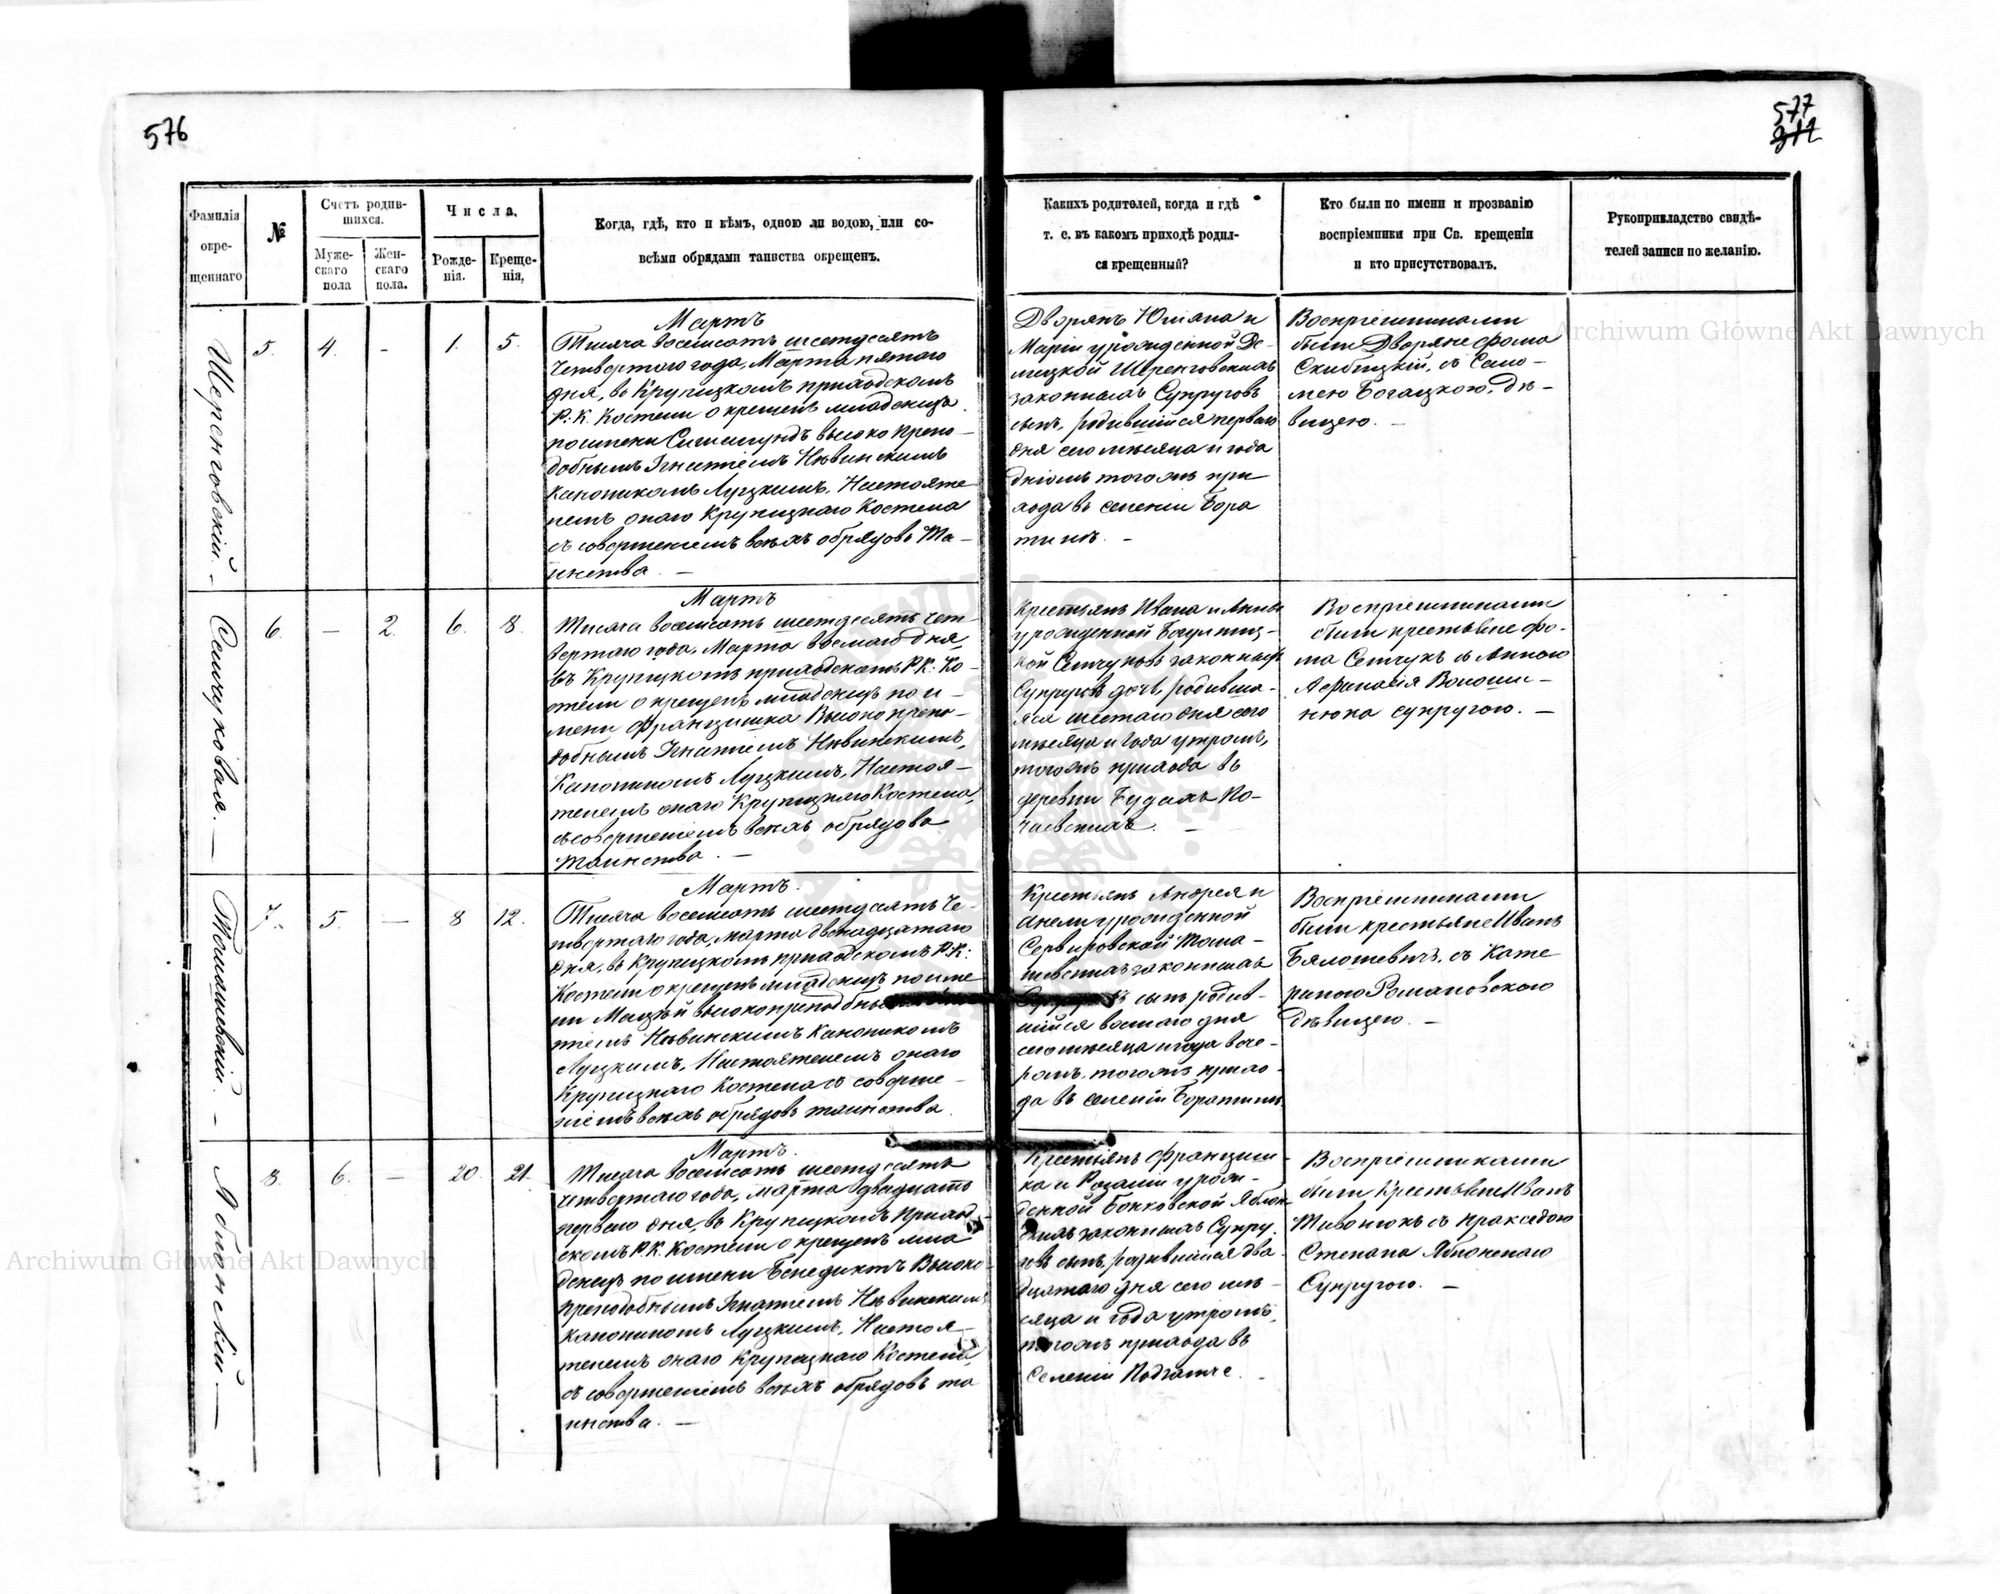 576
577
311
Фамилія окре-щеннаго
№
Счетъ родив-шихся.
Муже-скаго пола
Жен-скаго пола.
Числа.
Рожде-нія.
Креще-нія,
Когда, гдѣ, кто и кѣмъ, одною ли водою, или со-
всѣми обрядами таинства окрещенъ.
Какихъ родителей, когда и гдѣ
т. е. въ какомъ приходѣ родил-
ся крещенный?
Кто были по имени и прозванію
воспріемники при Св. крещеніи
и кто присутствовалъ.
Рукоприкладство свидѣ-
телей записи по желанію.
Шеренговскій. –
5. 4. - 1. 5.
Мартъ
Тысяча восемсотъ шестдесятъ
четвертого года, Марта пятаго
дня, въ Крупецкомъ приходскомъ
Р: К. Костели окрещенъ младенецъ
по имени Сигисмундъ высоко препо-
добнымъ Игнатіемъ Нѣвинскимъ
каноникомъ Луцкимъ, Настояте
лемъ онаго Крупецкаго Костела
съ совершеніемъ всѣхъ обрядовъ Та-
инства. –
Дворянъ Юліана и
Маріи урожденной До-
мецкой Шеренговскихъ
законныхъ Супруговъ
сынъ, родившійся перваго
дня сего мѣсяца и года
днiомъ того жъ при
хода въ селеніи Бора
тинѣ. –
Воспріемниками
были Дворяне Фома
Скибицкій, съ Сало-
меею Богацкою, дѣ-
вицею. –
Семчуковая. –
6. – 2. 6. 8.
Мартъ
Тысяча восемсотъ шестдесятъ чет-
вертаго года, Марта восмаго дня,
въ Крупецкомъ приходскомъ Р. К: Ко-
стели окрещенъ младенецъ по и-
мени Францишка Высокопрепо-
добнымъ Игнатіемъ Нѣвинскимъ,
Каноникомъ Луцкимъ, Настоя-
телемъ онаго Крупецкаго Костела,
съ совершеніемъ всѣхъ обрядовъ
Таинства. –
Крестьянъ Ивана и Анны
урожденной
Семчуковъ законныхъ
Супруговъ дочь, родивша-
яся шестаго дня сего
мѣсяца и года утромъ,
того жъ прихода въ
деревни Будахъ По-
чаевскихъ. –
Воспріемниками
были крестьяне Фо-
ма Семчукъ съ Анною
Афанасія Волоши-
нюка супругою. –
Томашевскій. –
7. 5. – 8 12.
Мартъ.
Тысяча восемсотъ шестдесятъ че-
твертаго года, марта двенадцатаго
дня, въ Крупецкомъ приходскомъ Р. К:
Костели окрещенъ младенецъ по име
ни Мацѣй высокопреподобны
тіемъ Нѣвинскимъ Каноникомъ
Луцкимъ, Настоятелемъ онаго
Крупецкаго Костела съ соверше-
ніемъ всѣхъ обрядовъ таинства.
Крестьянъ Андрея и
Анели урожденной
Сервировской Тома-
шевскихъ законныхъ
сынъ родив-
шійся восмаго дня
сего мѣсяца и года вече-
ромъ, того жъ прихо-
да въ селеніи Боратинѣ.
Воспріемниками
были крестьяне Иванъ
Бялошевичъ, съ Кате
риною Романовскою
Дѣвицею. –
Яблонскій –
8. 6. – 20. 21.
Мартъ.
Тысяча восемсотъ шестдесятъ
четвертаго года, марта двадцатъ
первого дня, въ Крупецкомъ Приход
скомъ Р. К. Костели окрещенъ мла
денецъ по имени Бенедиктъ Высоко-
преподобнымъ Игнатіемъ Нѣвинскимъ
каноникомъ Луцкимъ, Настоя-
телемъ онаго Крупецкаго Костела,
съ совершеніемъ всѣхъ обрядовъ та
инства. –
Крестьянъ Францыш-
ка и Розаліи урож-
денной Бонковской Яблон-
скихъ законныхъ Супру-
говъ сынъ, родившійся два-
дцатаго дня сего мѣ-
сяца и года утромъ,
того жъ прихода въ
Селеніи Подзамче. –
Воспріемниками
были Крестьяне Иванъ
съ Праксадою
Степана Яблонскаго
Супругою. –
Archiwum Główne Akt Dawnych
Archiwum Główne Akt Dawnych